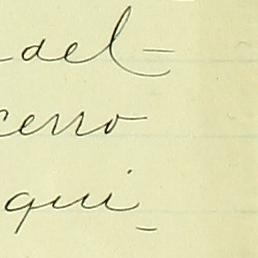 del-
cerro
qui-